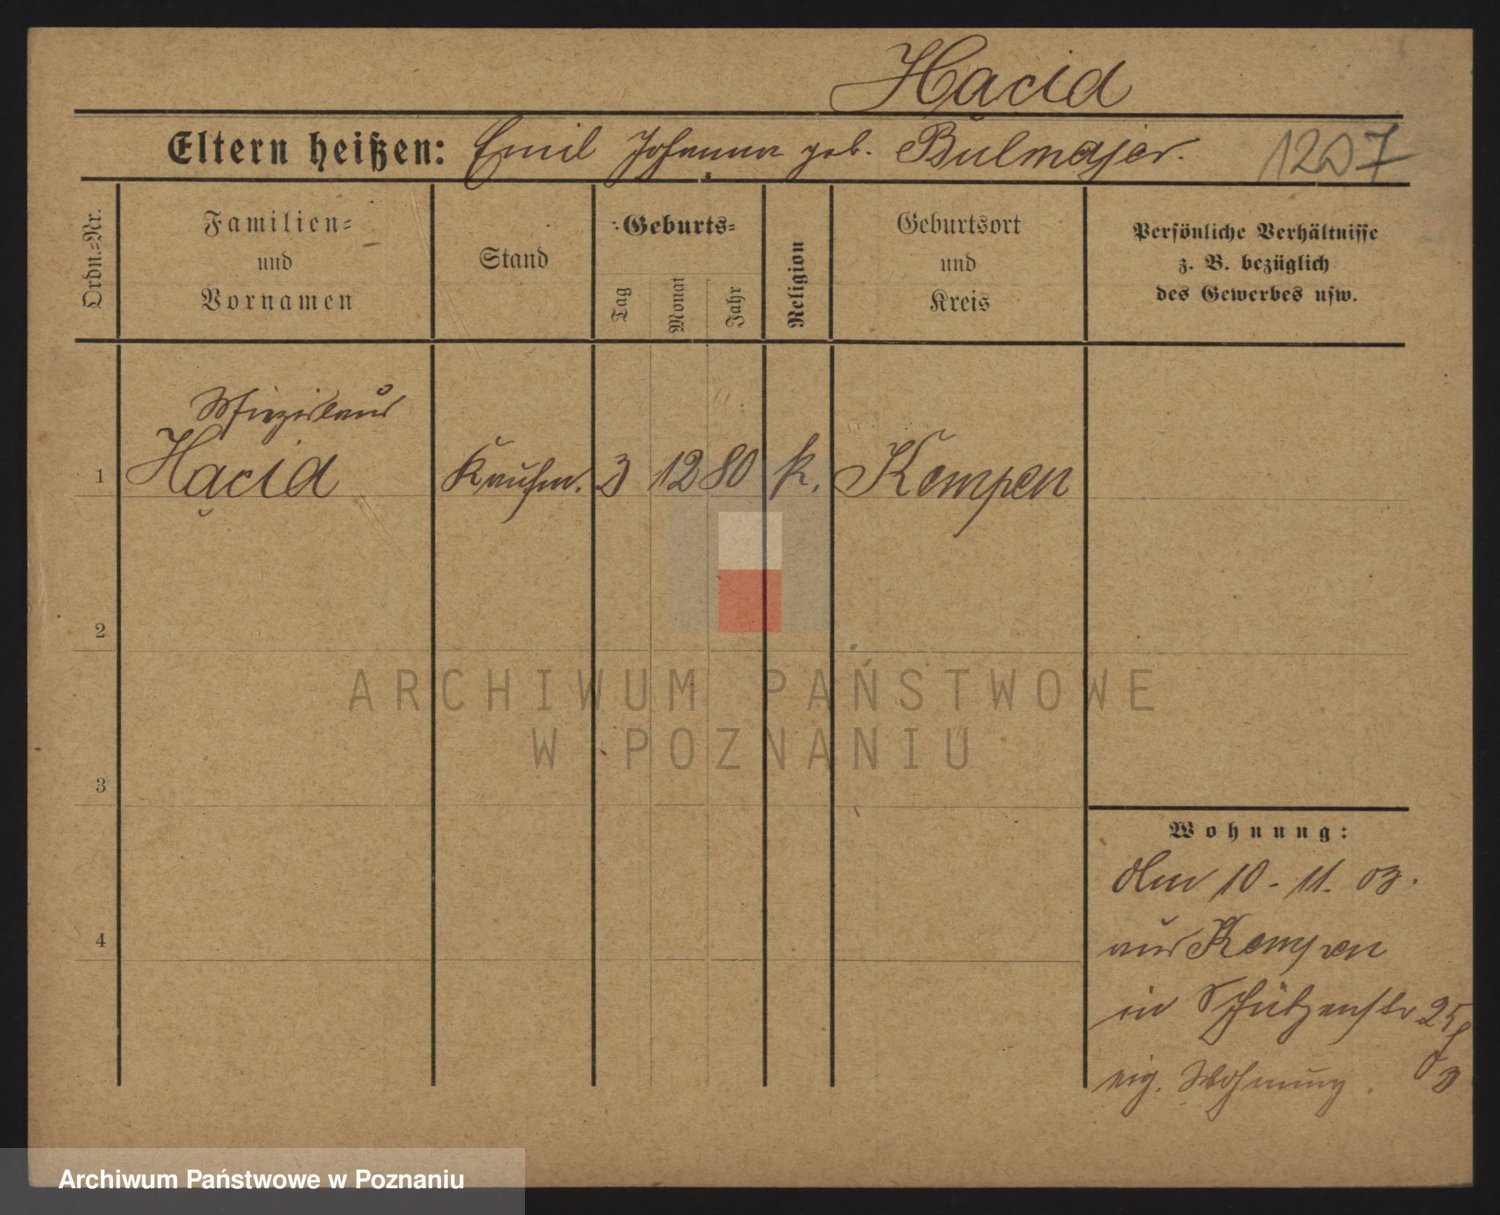 Hacid
Eltern heißen: Emil Johanna geb. Bulmajer.
1207
Ordn.=Nr.
Familien=
und
Vornamen
Stand
Geburts=
Tag
Monat
Jahr
Religion
Geburtsort
und
Kreis
Persönliche Verhältnisse
z. B. bezüglich
des Gewerbes usw.
Miezislaus
1 Hącid Kaufm. 3 12 80 k. Kempen
2
3
4
Wohnung:
10 - 11. 03.
aus Kempen
in Schützenstr 25
eig. Wohnung.
ARCHIWUM PAŃSTWOWE
W POZNANIU
Archiwum Państwowe w Poznaniu